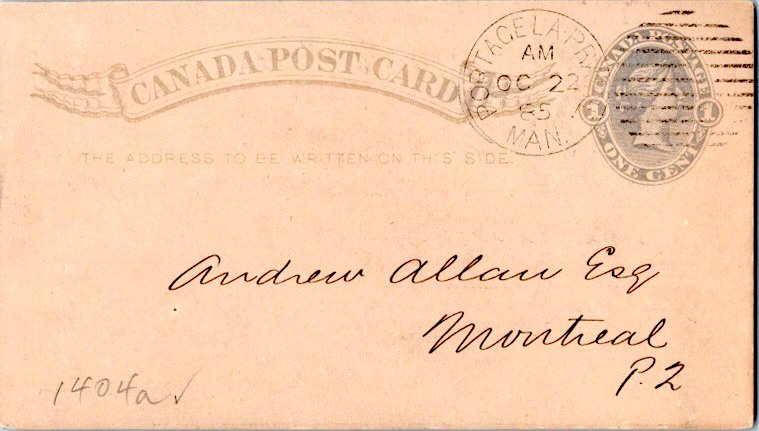 CANADA POST CARD
PORTAGE LA PR
AM
OC 22
85
MAN.
CANADA POSTAGE
1 1
ONE CENT
THE ADDRESS TO BE WRITTEN ON THIS SIDE.
Andrew Allan Esq
Montreal
P.Q
1404a